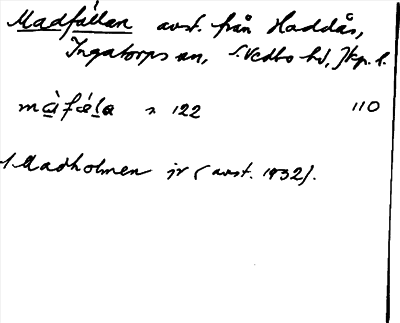 Madfállan avst. från Haddås,
Ingatorps sn, S. Vedbo hd, Jkp. l.
màfǽla s 122 110
Madholmen jr (avst. 1932).